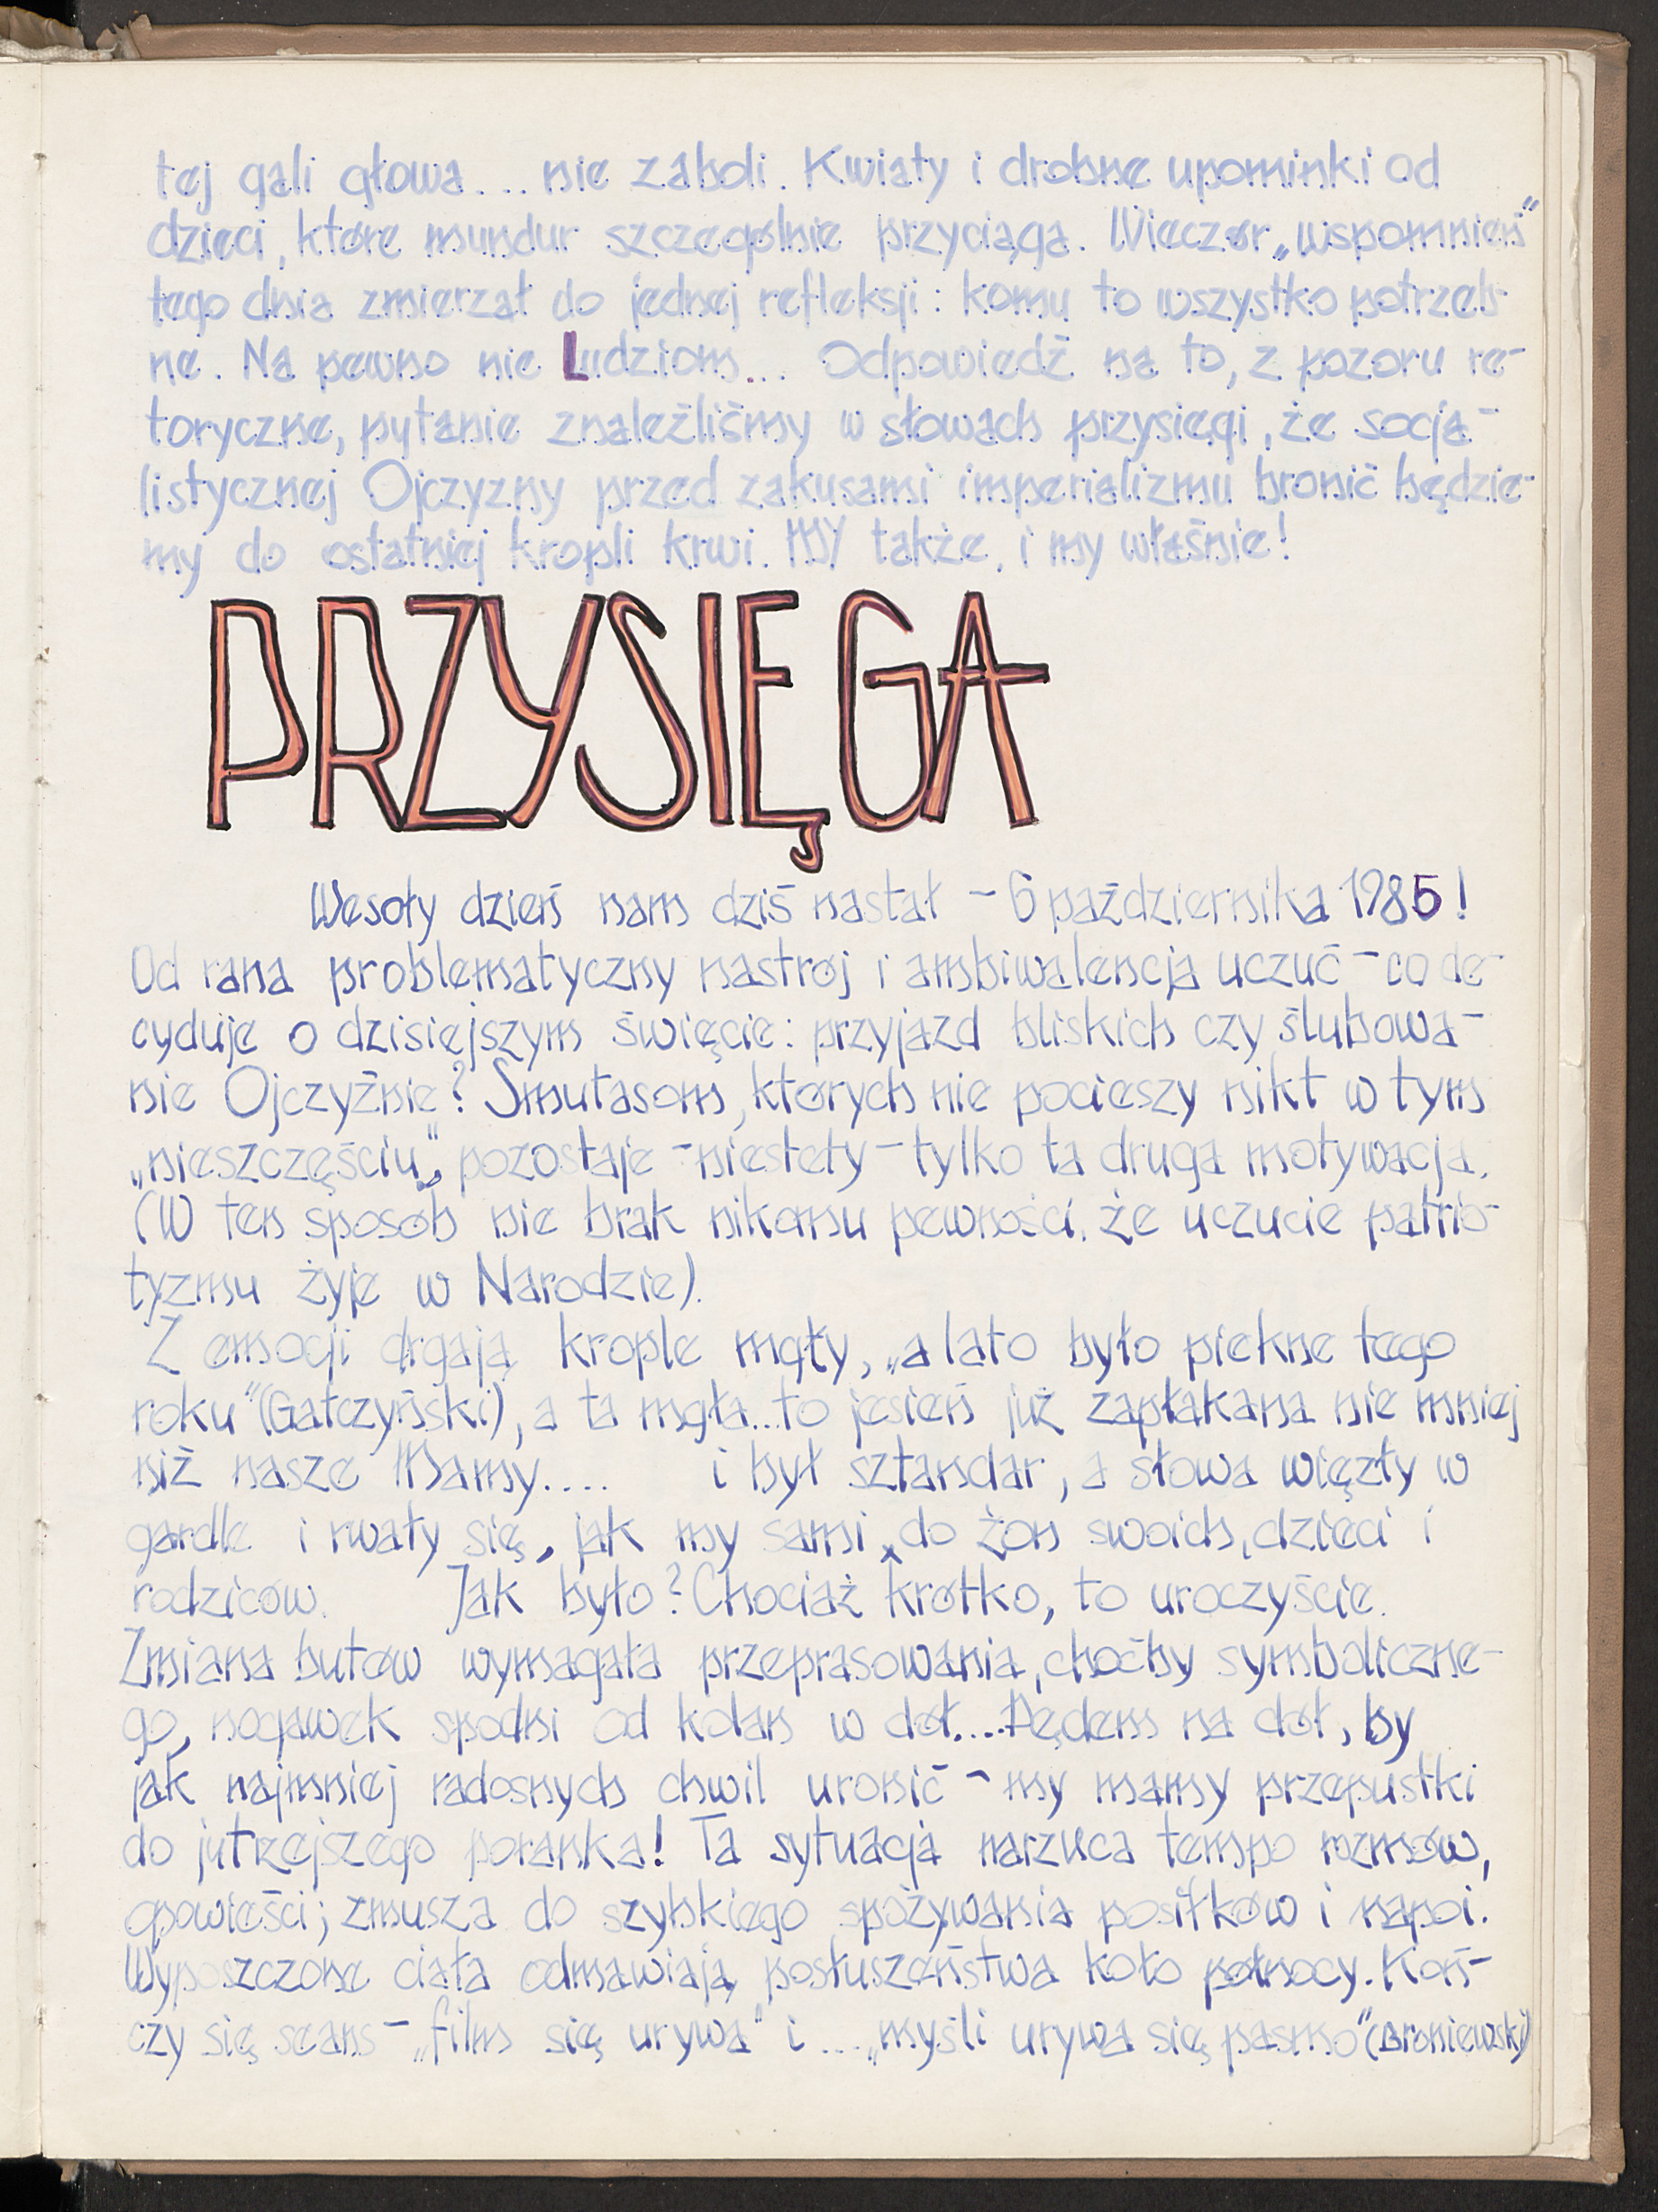 tej gali głowa... nie zaboli. Kwiaty i drobne upominki od
dzieci, które mundur szczególnie przyciąga. Wieczór „wspomnień"
tego dnia zmierzał do jednej refleksji: komu to wszystko potrzeb-
ne. Na pewno nie Ludziom... Odpowiedź na to, z pozoru re-
toryczne, pytanie znaleźliśmy w słowach przysięgi, że socja-
listycznej Ojczyzny przed zakusami imperializmu bronić będzie-
my do ostatniej kropli krwi. MY także, i my właśnie!
PRZYSIĘGA
Wesoły dzień nam dziś nastał - 6 października 1985!
Od rana problematyczny nastrój i ambiwalencja uczuć - co de-
cyduje o dzisiejszym święcie: przyjazd bliskich czy ślubowa-
nie Ojczyźnie? Smutasom, których nie pocieszy nikt w tym
„nieszczęściu", pozostaje - niestety - tylko ta druga motywacja.
(W ten sposób nie brak nikomu pewności, że uczucie patrio-
tyzmu żyje w Narodzie).
Z emocji drgają krople mgły, „a lato było piękne tego
roku" (Gałczyński), a ta mgła...to jesień już zapłakana nie mniej
niż nasze Mamy.... i był sztandar, a słowa więzły w
gardle i rwały się, jak my sami, do żon swoich, dzieci i
rodziców. Jak było? Chociaż krótko, to uroczyście.
Zmiana butów wymagała przeprasowania, choćby symboliczne-
go, nogawek spodni od kolan w dół....Pędem na dół, by
jak najmniej radosnych chwil uronić - my mamy przepustki
do jutrzejszego poranka! Ta sytuacja narzuca tempo rozmów,
opowieści; zmusza do szybkiego spożywania posiłków i napoi.
Wyposzczone ciała odmawiają posłuszeństwa koło północy. Koń-
czy się seans - „film się urywa" i ... „myśli urywa się pasmo" (Broniewski)